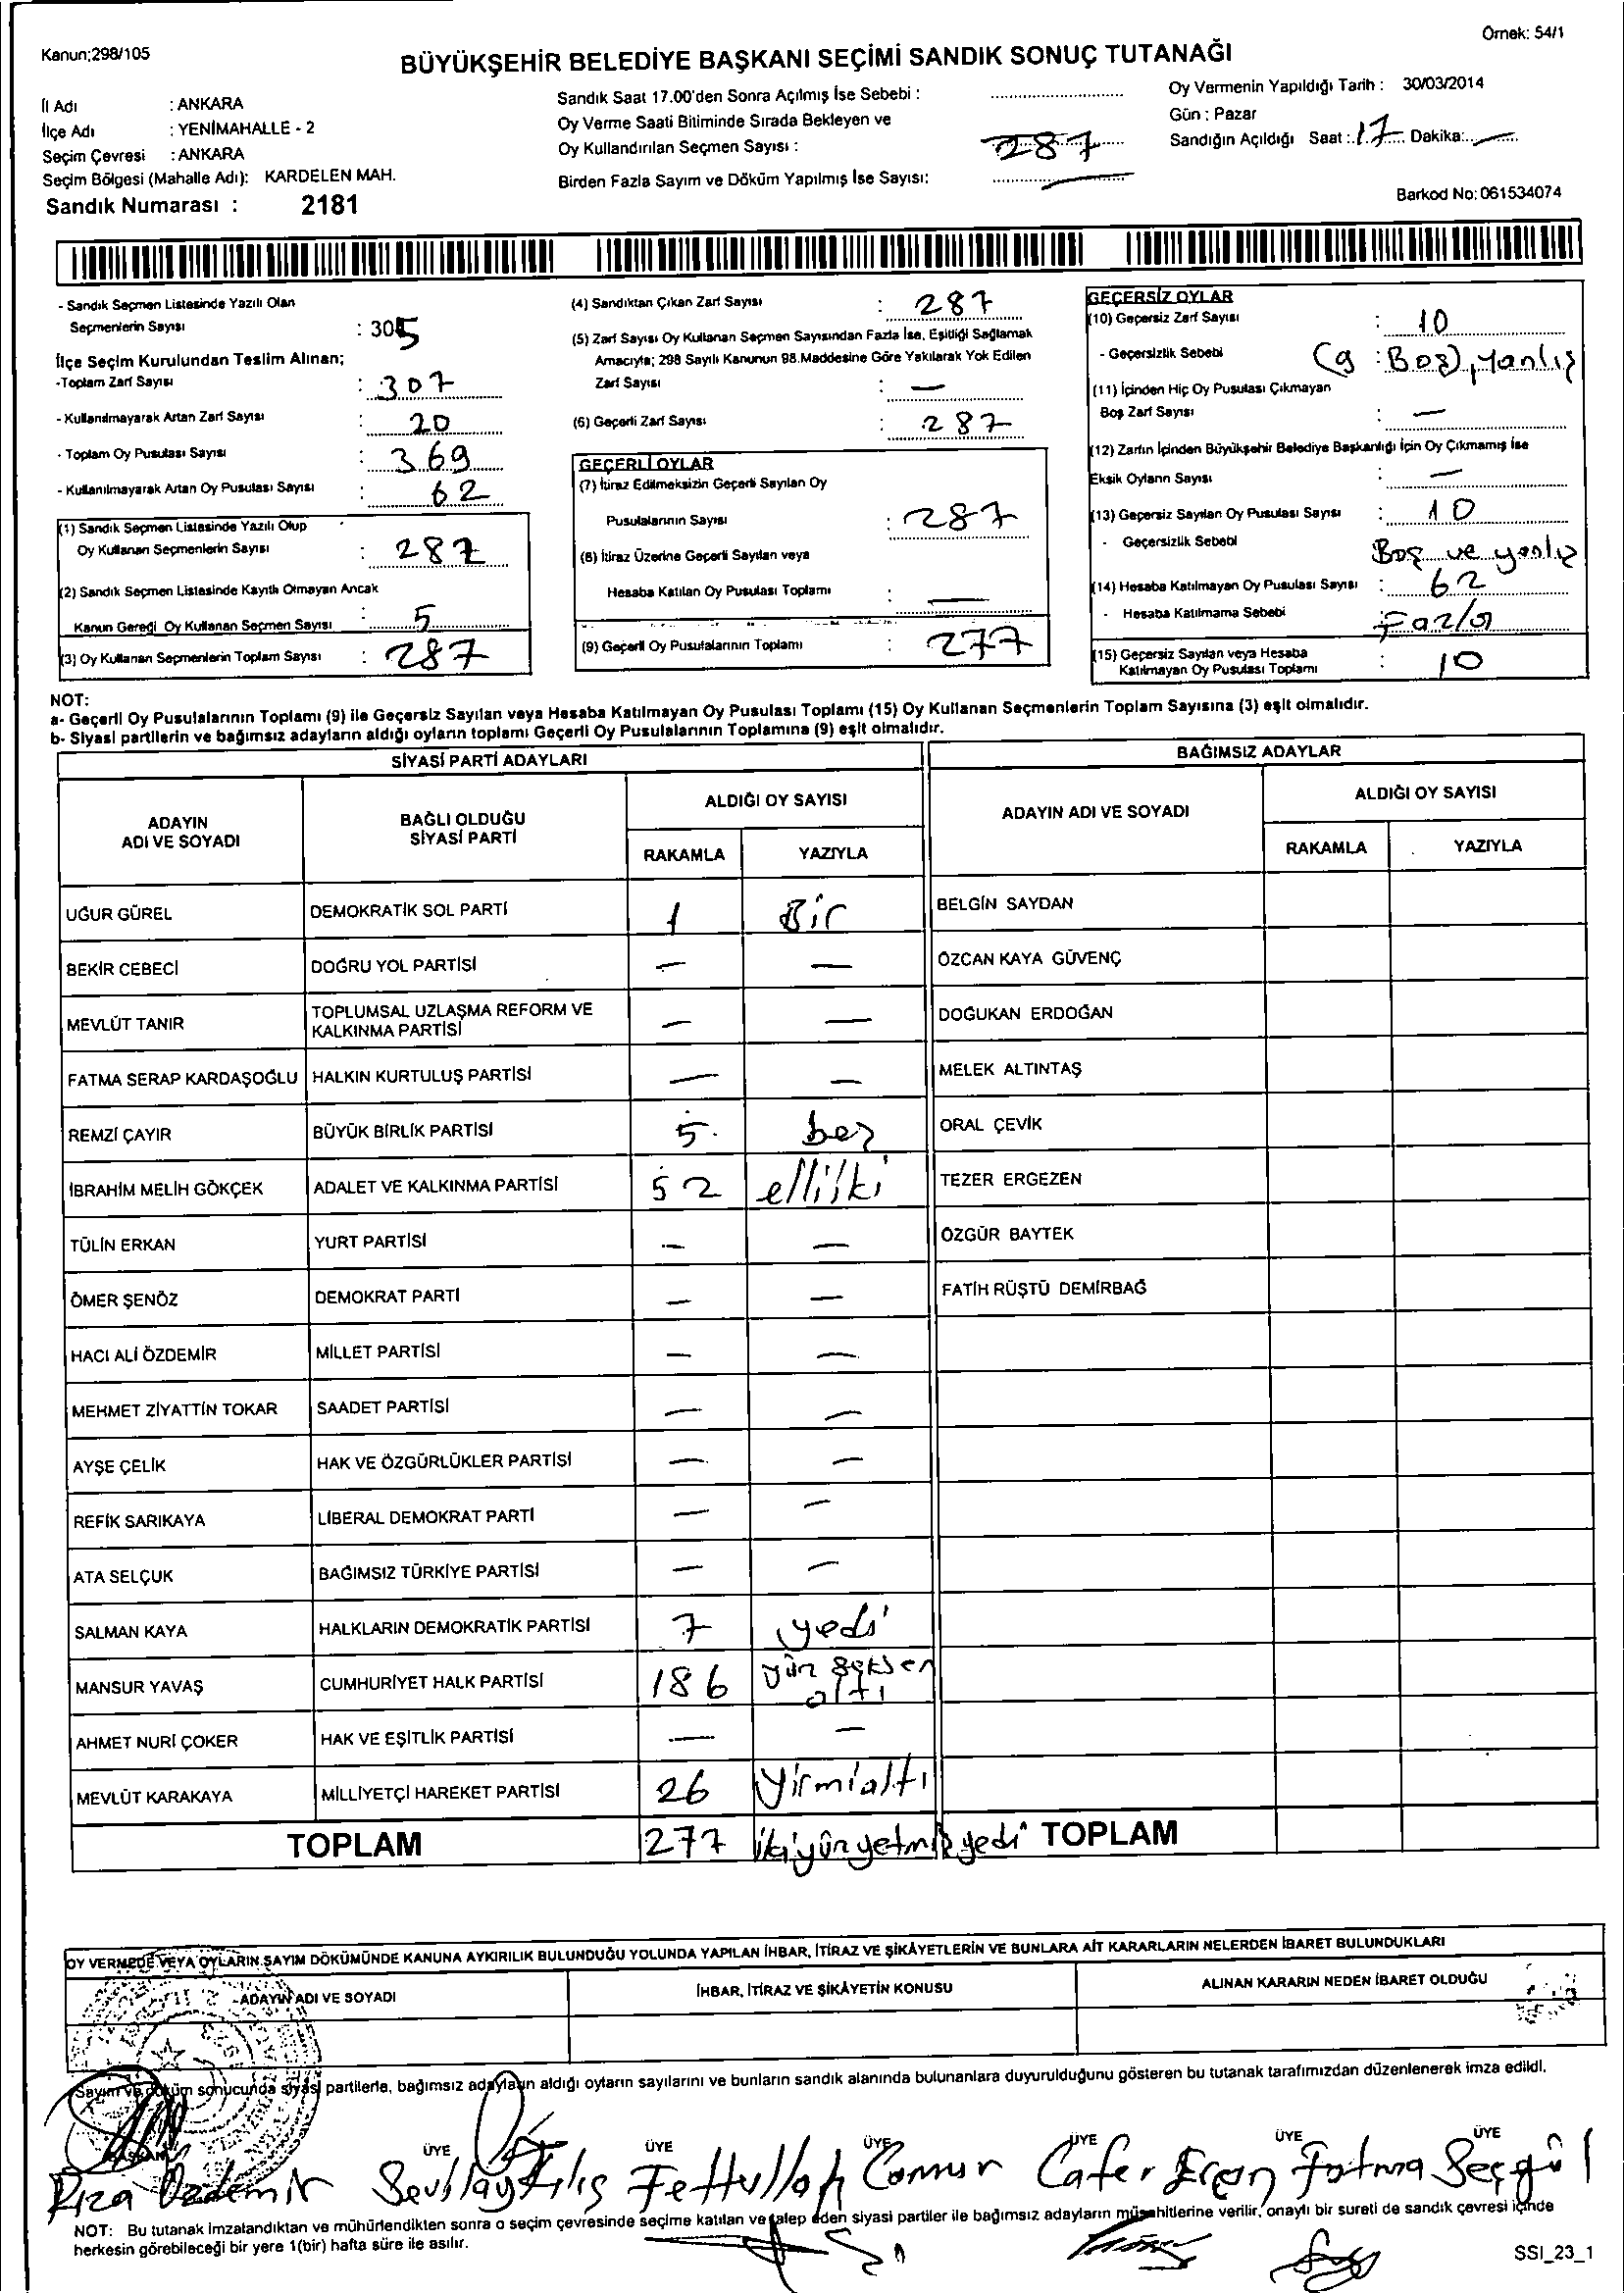 Kanun;298/105
Örnek: 54/1
BÜYÜKŞEHİR BELEDİYE BAŞKANI SEÇİMİ SANDIK SONUÇ TUTANAĞI
İl Adı : ANKARA
İlçe Adı : YENİMAHALLE - 2
Seçim Çevresi : ANKARA
Seçim Bölgesi (Mahalle Adı): KARDELEN MAH.
Sandık Numarası : 2181
Sandık Saat 17.00'den Sonra Açılmış İse Sebebi :
Oy Verme Saati Bitiminde Sırada Bekleyen ve
Oy Kullandırılan Seçmen Sayısı : 287
Birden Fazla Sayım ve Döküm Yapılmış İse Sayısı: —
Oy Vermenin Yapıldığı Tarih : 30/03/2014
Gün : Pazar
Sandığın Açıldığı Saat : 17 Dakika: —
Barkod No: 061534074
- Sandık Seçmen Listesinde Yazılı Olan
Seçmenlerin Sayısı : 305
İlçe Seçim Kurulundan Teslim Alınan;
-Toplam Zarf Sayısı : 307
- Kullanılmayarak Artan Zarf Sayısı : 20
- Toplam Oy Pusulası Sayısı : 369
- Kullanılmayarak Artan Oy Pusulası Sayısı : 62
(1) Sandık Seçmen Listesinde Yazılı Olup
Oy Kullanan Seçmenlerin Sayısı : 287
(2) Sandık Seçmen Listesinde Kayıtlı Olmayan Ancak
Kanun Gereği Oy Kullanan Seçmen Sayısı : 5
(3) Oy Kullanan Seçmenlerin Toplam Sayısı : 287
(4) Sandıktan Çıkan Zarf Sayısı : 287
(5) Zarf Sayısı Oy Kullanan Seçmen Sayısından Fazla İse, Eşitliği Sağlamak
Amacıyla; 298 Sayılı Kanunun 98.Maddesine Göre Yakılarak Yok Edilen
Zarf Sayısı : —
(6) Geçerli Zarf Sayısı : 287
GEÇERLİ OYLAR
(7) İtiraz Edilmeksizin Geçerli Sayılan Oy
Pusulalarının Sayısı : 287
(8) İtiraz Üzerine Geçerli Sayılan veya
Hesaba Katılan Oy Pusulası Toplamı : —
(9) Geçerli Oy Pusulalarının Toplamı : 277
GEÇERSİZ OYLAR
(10) Geçersiz Zarf Sayısı : 10
- Geçersizlik Sebebi (9 : Boş), Yanlış
(11) İçinden Hiç Oy Pusulası Çıkmayan
Boş Zarf Sayısı : —
(12) Zarfın İçinden Büyükşehir Belediye Başkanlığı İçin Oy Çıkmamış İse
Eksik Oyların Sayısı : —
(13) Geçersiz Sayılan Oy Pusulası Sayısı : 10
- Geçersizlik Sebebi Boş ve yanlış
(14) Hesaba Katılmayan Oy Pusulası Sayısı : 62
- Hesaba Katılmama Sebebi : Fazla
(15) Geçersiz Sayılan veya Hesaba
Katılmayan Oy Pusulası Toplamı : 10
NOT:
a- Geçerli Oy Pusulalarının Toplamı (9) ile Geçersiz Sayılan veya Hesaba Katılmayan Oy Pusulası Toplamı (15) Oy Kullanan Seçmenlerin Toplam Sayısına (3) eşit olmalıdır.
b- Siyasi partilerin ve bağımsız adayların aldığı oyların toplamı Geçerli Oy Pusulalarının Toplamına (9) eşit olmalıdır.
SİYASİ PARTİ ADAYLARI
BAĞIMSIZ ADAYLAR
ADAYIN
ADI VE SOYADI
BAĞLI OLDUĞU
SİYASİ PARTİ
ALDIĞI OY SAYISI
RAKAMLA YAZIYLA
ADAYIN ADI VE SOYADI
ALDIĞI OY SAYISI
RAKAMLA YAZIYLA
UĞUR GÜREL DEMOKRATİK SOL PARTİ 1 Bir
BELGİN SAYDAN
BEKİR CEBECİ DOĞRU YOL PARTİSİ — —
ÖZCAN KAYA GÜVENÇ
MEVLÜT TANIR TOPLUMSAL UZLAŞMA REFORM VE
KALKINMA PARTİSİ — —
DOĞUKAN ERDOĞAN
FATMA SERAP KARDAŞOĞLU HALKIN KURTULUŞ PARTİSİ — —
MELEK ALTINTAŞ
REMZİ ÇAYIR BÜYÜK BİRLİK PARTİSİ 5 beş
ORAL ÇEVİK
İBRAHİM MELİH GÖKÇEK ADALET VE KALKINMA PARTİSİ 52 elliiki
TEZER ERGEZEN
TÜLİN ERKAN YURT PARTİSİ — —
ÖZGÜR BAYTEK
ÖMER ŞENÖZ DEMOKRAT PARTİ — —
FATİH RÜŞTÜ DEMİRBAĞ
HACI ALİ ÖZDEMİR MİLLET PARTİSİ — —
MEHMET ZİYATTİN TOKAR SAADET PARTİSİ — —
AYŞE ÇELİK HAK VE ÖZGÜRLÜKLER PARTİSİ — —
REFİK SARIKAYA LİBERAL DEMOKRAT PARTİ — —
ATA SELÇUK BAĞIMSIZ TÜRKİYE PARTİSİ — —
SALMAN KAYA HALKLARIN DEMOKRATİK PARTİSİ 7 yedi
MANSUR YAVAŞ CUMHURİYET HALK PARTİSİ 186 yüz seksen
altı
AHMET NURİ ÇOKER HAK VE EŞİTLİK PARTİSİ — —
MEVLÜT KARAKAYA MİLLİYETÇİ HAREKET PARTİSİ 26 Yirmialtı
TOPLAM 277 ikiyüzyetmişyedi TOPLAM
OY VERMEDE VEYA OYLARIN SAYIM DÖKÜMÜNDE KANUNA AYKIRILIK BULUNDUĞU YOLUNDA YAPILAN İHBAR, İTİRAZ VE ŞİKÂYETLERİN VE BUNLARA AİT KARARLARIN NELERDEN İBARET BULUNDUKLARI
ADAYIN ADI VE SOYADI
İHBAR, İTİRAZ VE ŞİKÂYETİN KONUSU
ALINAN KARARIN NEDEN İBARET OLDUĞU
Sayım ve döküm sonucunda siyasi partilerle, bağımsız adayların aldığı oyların sayılarını ve bunların sandık alanında bulunanlara duyurulduğunu gösteren bu tutanak tarafımızdan düzenlenerek imza edildi.
BAŞKAN ÜYE ÜYE ÜYE ÜYE ÜYE ÜYE
Rıza Özdemir Sevilay Kılıç Fettullah Comur Cafer Eren Fatma Seçgül
NOT: Bu tutanak imzalandıktan ve mühürlendikten sonra o seçim çevresinde seçime katılan ve talep eden siyasi partiler ile bağımsız adayların müşahitlerine verilir, onaylı bir sureti de sandık çevresi içinde
herkesin görebileceği bir yere 1(bir) hafta süre ile asılır.
SSI_23_1